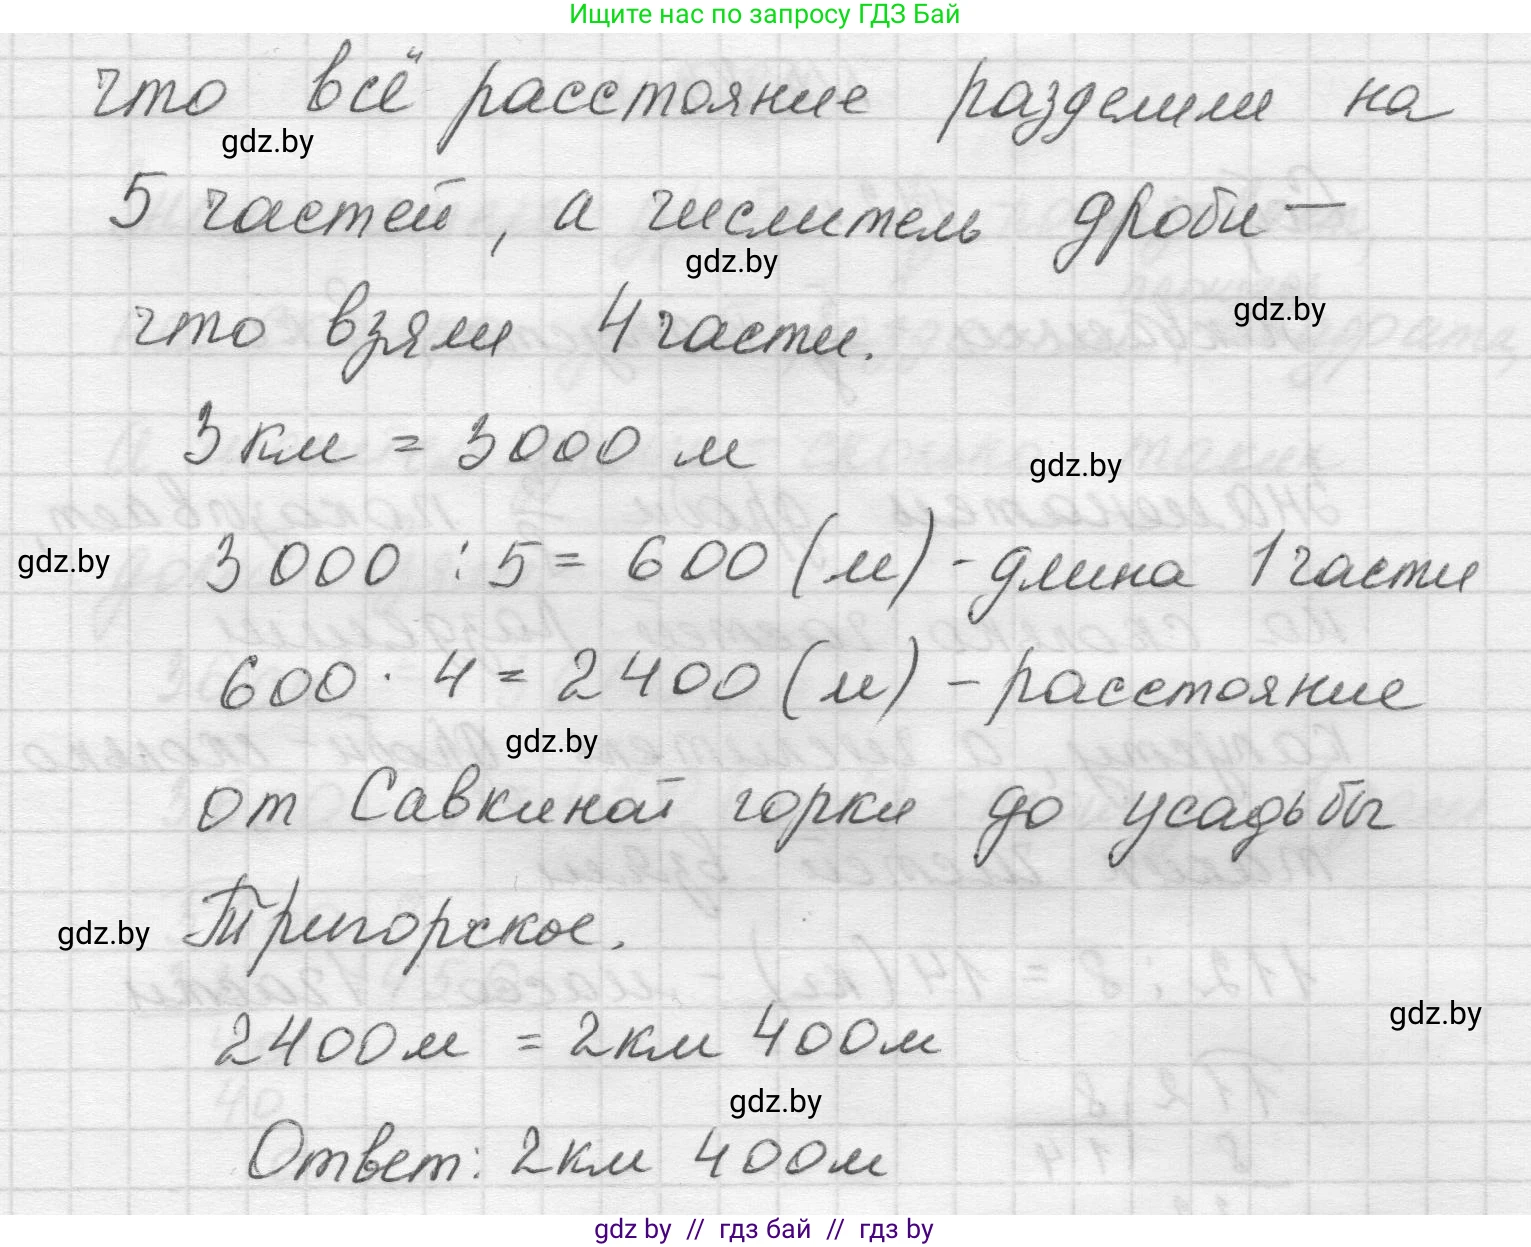 Ищите нас по запросу ГДЗ Бай
что всё расстояние разделили на
gdz.by
5 частей, а числитель дроби —
gdz.by
gdz.by
что взяли 4 части.
3 км = 3000 м
gdz.by
gdz.by
3000 : 5 = 600 (м) - длина 1 части
600 · 4 = 2400 (м) - расстояние
gdz.by
от Савкиной горки до усадьбы
gdz.by
Тригорское.
gdz.by
2400 м = 2 км 400 м
gdz.by
Ответ: 2 км 400 м
gdz by // гдз бай // гдз by